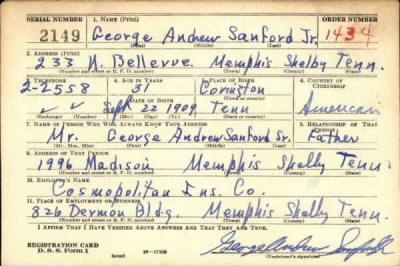 SERIAL NUMBER 1. NAME (Print) ORDER NUMBER
2149 George Andrew Sanford Jr. 1434
(First) (Middle) (Last)
2. ADDRESS (Print)
233 N. Bellevue. Memphis Shelby Tenn.
(Number and street or R. F. D. number) (Town) (County) (State)
3. TELEPHONE 4. AGE IN YEARS 5. PLACE OF BIRTH 6. COUNTRY OF CITIZENSHIP
2-2558 31 Covington
DATE OF BIRTH (Town or county)
Sept. 22 1909 Tenn American
(Mo.) (Day) (Yr.) (State or country)
7. NAME OF PERSON WHO WILL ALWAYS KNOW YOUR ADDRESS 8. RELATIONSHIP OF THAT PERSON
Mr. George Andrew Sanford Sr. Father
(Mr., Mrs., Miss) (First) (Middle) (Last)
9. ADDRESS OF THAT PERSON
1996 Madison Memphis Shelby Tenn
(Number and street or R. F. D. number) (Town) (County) (State)
10. EMPLOYER'S NAME
Cosmopolitan Ins. Co.
11. PLACE OF EMPLOYMENT OR BUSINESS
826 Dermon Bldg. Memphis Shelby Tenn.
(Number and street or R. F. D. number) (Town) (County) (State)
I AFFIRM THAT I HAVE VERIFIED ABOVE ANSWERS AND THAT THEY ARE TRUE.
REGISTRATION CARD
D. S. S. Form 1 (over) George Andrew Sanford Jr
(Registrant's signature)